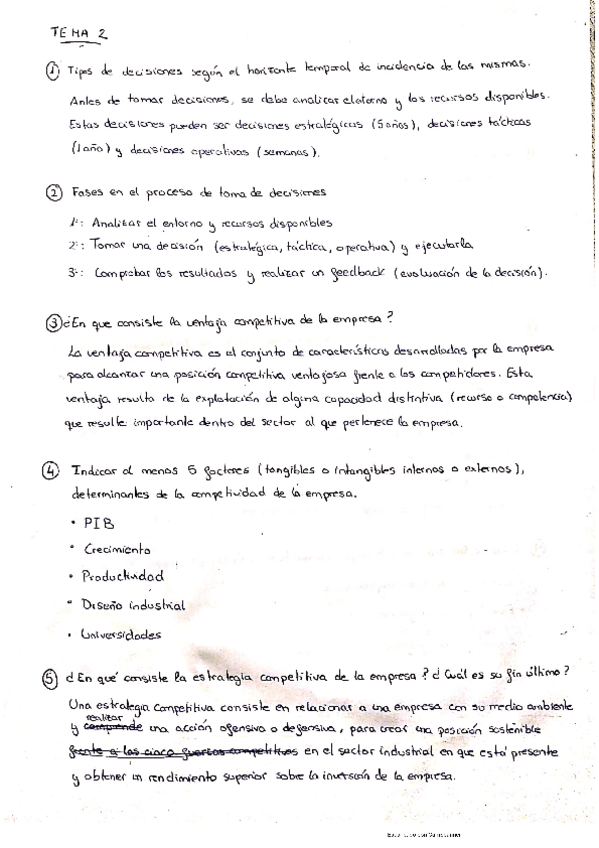 TEMA 2
① Tipos de decisiones según el horizonte temporal de incidencia de las mismas.
Antes de tomar decisiones, se debe analizar el entorno y los recursos disponibles.
Estas decisiones pueden ser decisiones estratégicas (5 años), decisiones tácticas
(1 año) y decisiones operativas (semanas).
② Fases en el proceso de toma de decisiones
1º: Analizar el entorno y recursos disponibles
2º: Tomar una decisión (estratégica, táctica, operativa) y ejecutarla
3º: Comprobar los resultados y realizar un feedback (evaluación de la decisión).
③ ¿En que consiste la ventaja competitiva de la empresa?
La ventaja competitiva es el conjunto de características desarrolladas por la empresa
para alcanzar una posición competitiva ventajosa frente a los competidores. Esta
ventaja resulta de la explotación de alguna capacidad distintiva (recurso o competencia)
que resulte importante dentro del sector al que pertenece la empresa.
④ Indicar al menos 5 factores (tangibles o intangibles internos o externos),
determinantes de la competividad de la empresa.
• PIB
• Crecimiento
• Productividad
• Diseño industrial
• Universidades
⑤ ¿En qué consiste la estrategia competitiva de la empresa? ¿Cuál es su fin último?
Una estrategia competitiva consiste en relacionar a una empresa con su medio ambiente
realizar
y comprende una acción ofensiva o defensiva, para crear una posición sostenible
frente a las cinco fuerzas competitivas en el sector industrial en que está presente
y obtener un rendimiento superior sobre la inversión de la empresa.